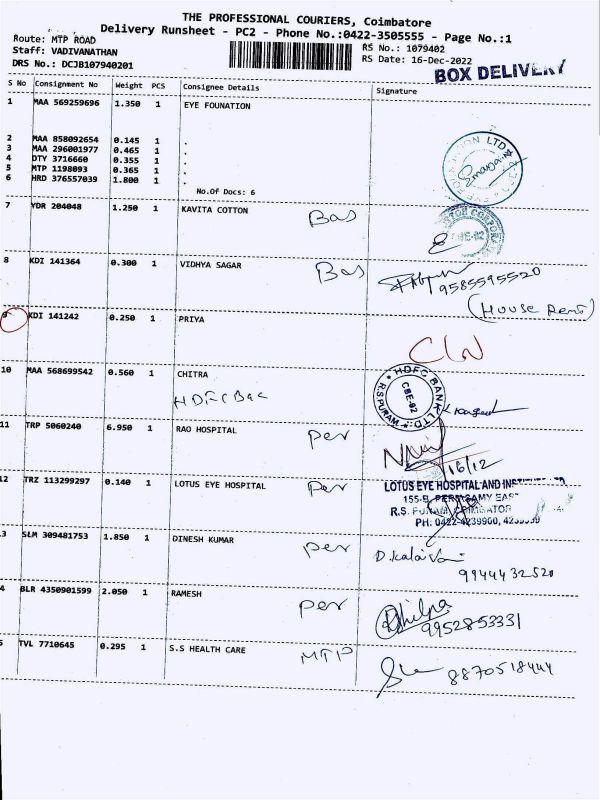 THE PROFESSIONAL COURIERS, Coimbatore
Delivery Runsheet - PC2 - Phone No.:0422-3505555 - Page No.:1
Route: MTP ROAD
Staff: VADIVANATHAN
DRS No.: DCJB107940201
RS No.: 1079402
RS Date: 16-Dec-2022
BOX DELIVERY
S No Consignment No Weight PCS Consignee Details Signature
1 MAA 569259696 1.350 1 EYE FOUNATION
2 MAA 858092654 0.145 1 .
3 MAA 296001977 0.465 1 .
4 DTY 3716660 0.355 1 .
5 MTP 1198093 0.365 1 .
6 HRD 376557039 1.800 1 .
No.Of Docs: 6
7 YDR 204048 1.250 1 KAVITA COTTON Bas
8 KDI 141364 0.300 1 VIDHYA SAGAR Bas
9585595520
(House Rent)
9 KDI 141242 0.250 1 PRIYA
CLN
10 MAA 568699542 0.560 1 CHITRA
HDFC BANK LTD. R.S PURAM CBE-02
11 TRP 5060240 6.950 1 RAO HOSPITAL per
16/12
12 TRZ 113299297 0.140 1 LOTUS EYE HOSPITAL per
LOTUS EYE HOSPITAL AND
155-B, PERIASAMY EAST
R.S. PURAM, COIMBATOR
PH: 0422-4239900,
3 SLM 309481753 1.850 1 DINESH KUMAR per
9944432520
4 BLR 4350901599 2.050 1 RAMESH per
9952853331
5 TVL 7710645 0.295 1 S.S HEALTH CARE MTP
8870518444